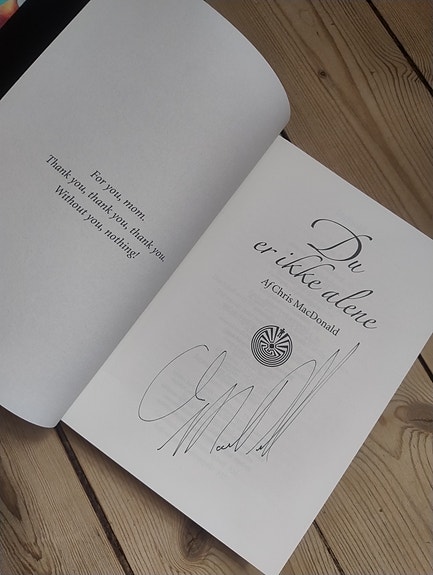 For you, mom.
Thank you, thank you, thank you.
Without you, nothing!
Du
er ikke alene
Af Chris MacDonald